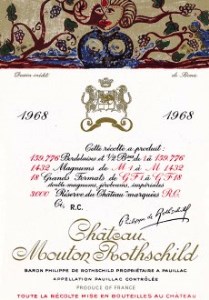 Dessin inédit de Bona
1968 1968
Cette récolte a produit :
139.776 Bordelaises et ½ Bses de 1 à 139.776
1432 Magnums de M 1 à M 1432
18 Grands Formats de G F 1 à G F 18
double magnums, jéroboams, impériales
3000 "Réserve du Château" marquées R.C.
Ci, R.C.
Philippe de Rothschild
Château
Mouton Rothschild
BARON PHILIPPE DE ROTHSCHILD PROPRIÉTAIRE A PAUILLAC
APPELLATION PAUILLAC CONTRÔLÉE
PRODUCE OF FRANCE
TOUTE LA RÉCOLTE MISE EN BOUTEILLES AU CHÂTEAU